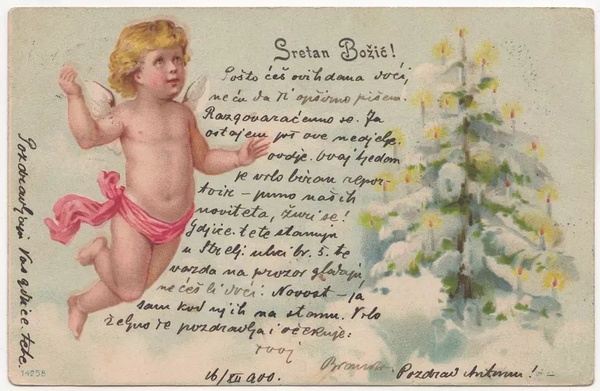 Sretan Božić!
Pošto ćeš ovih dana doći,
neću da Ti opširno pišem.
Razgovaraćemo se. Ja
ostajem još ove nedjelje
ovdje. Ovaj tjedan
je vrlo biran repor-
toir - puno naših
noviteta, žuri se!
Gdjice. tete stanuju
u Strelj. ulici br. 5. te
vazda na prozor gledaju,
nećeš li doći. Novost - ja
sam kod njih na stanu. Vrlo
željno te pozdravlja i očekuje:
tvoj
16/XII 900.
Pozdrav Antunu! -
Pozdravljaju Vas gdjice. tete.
14258